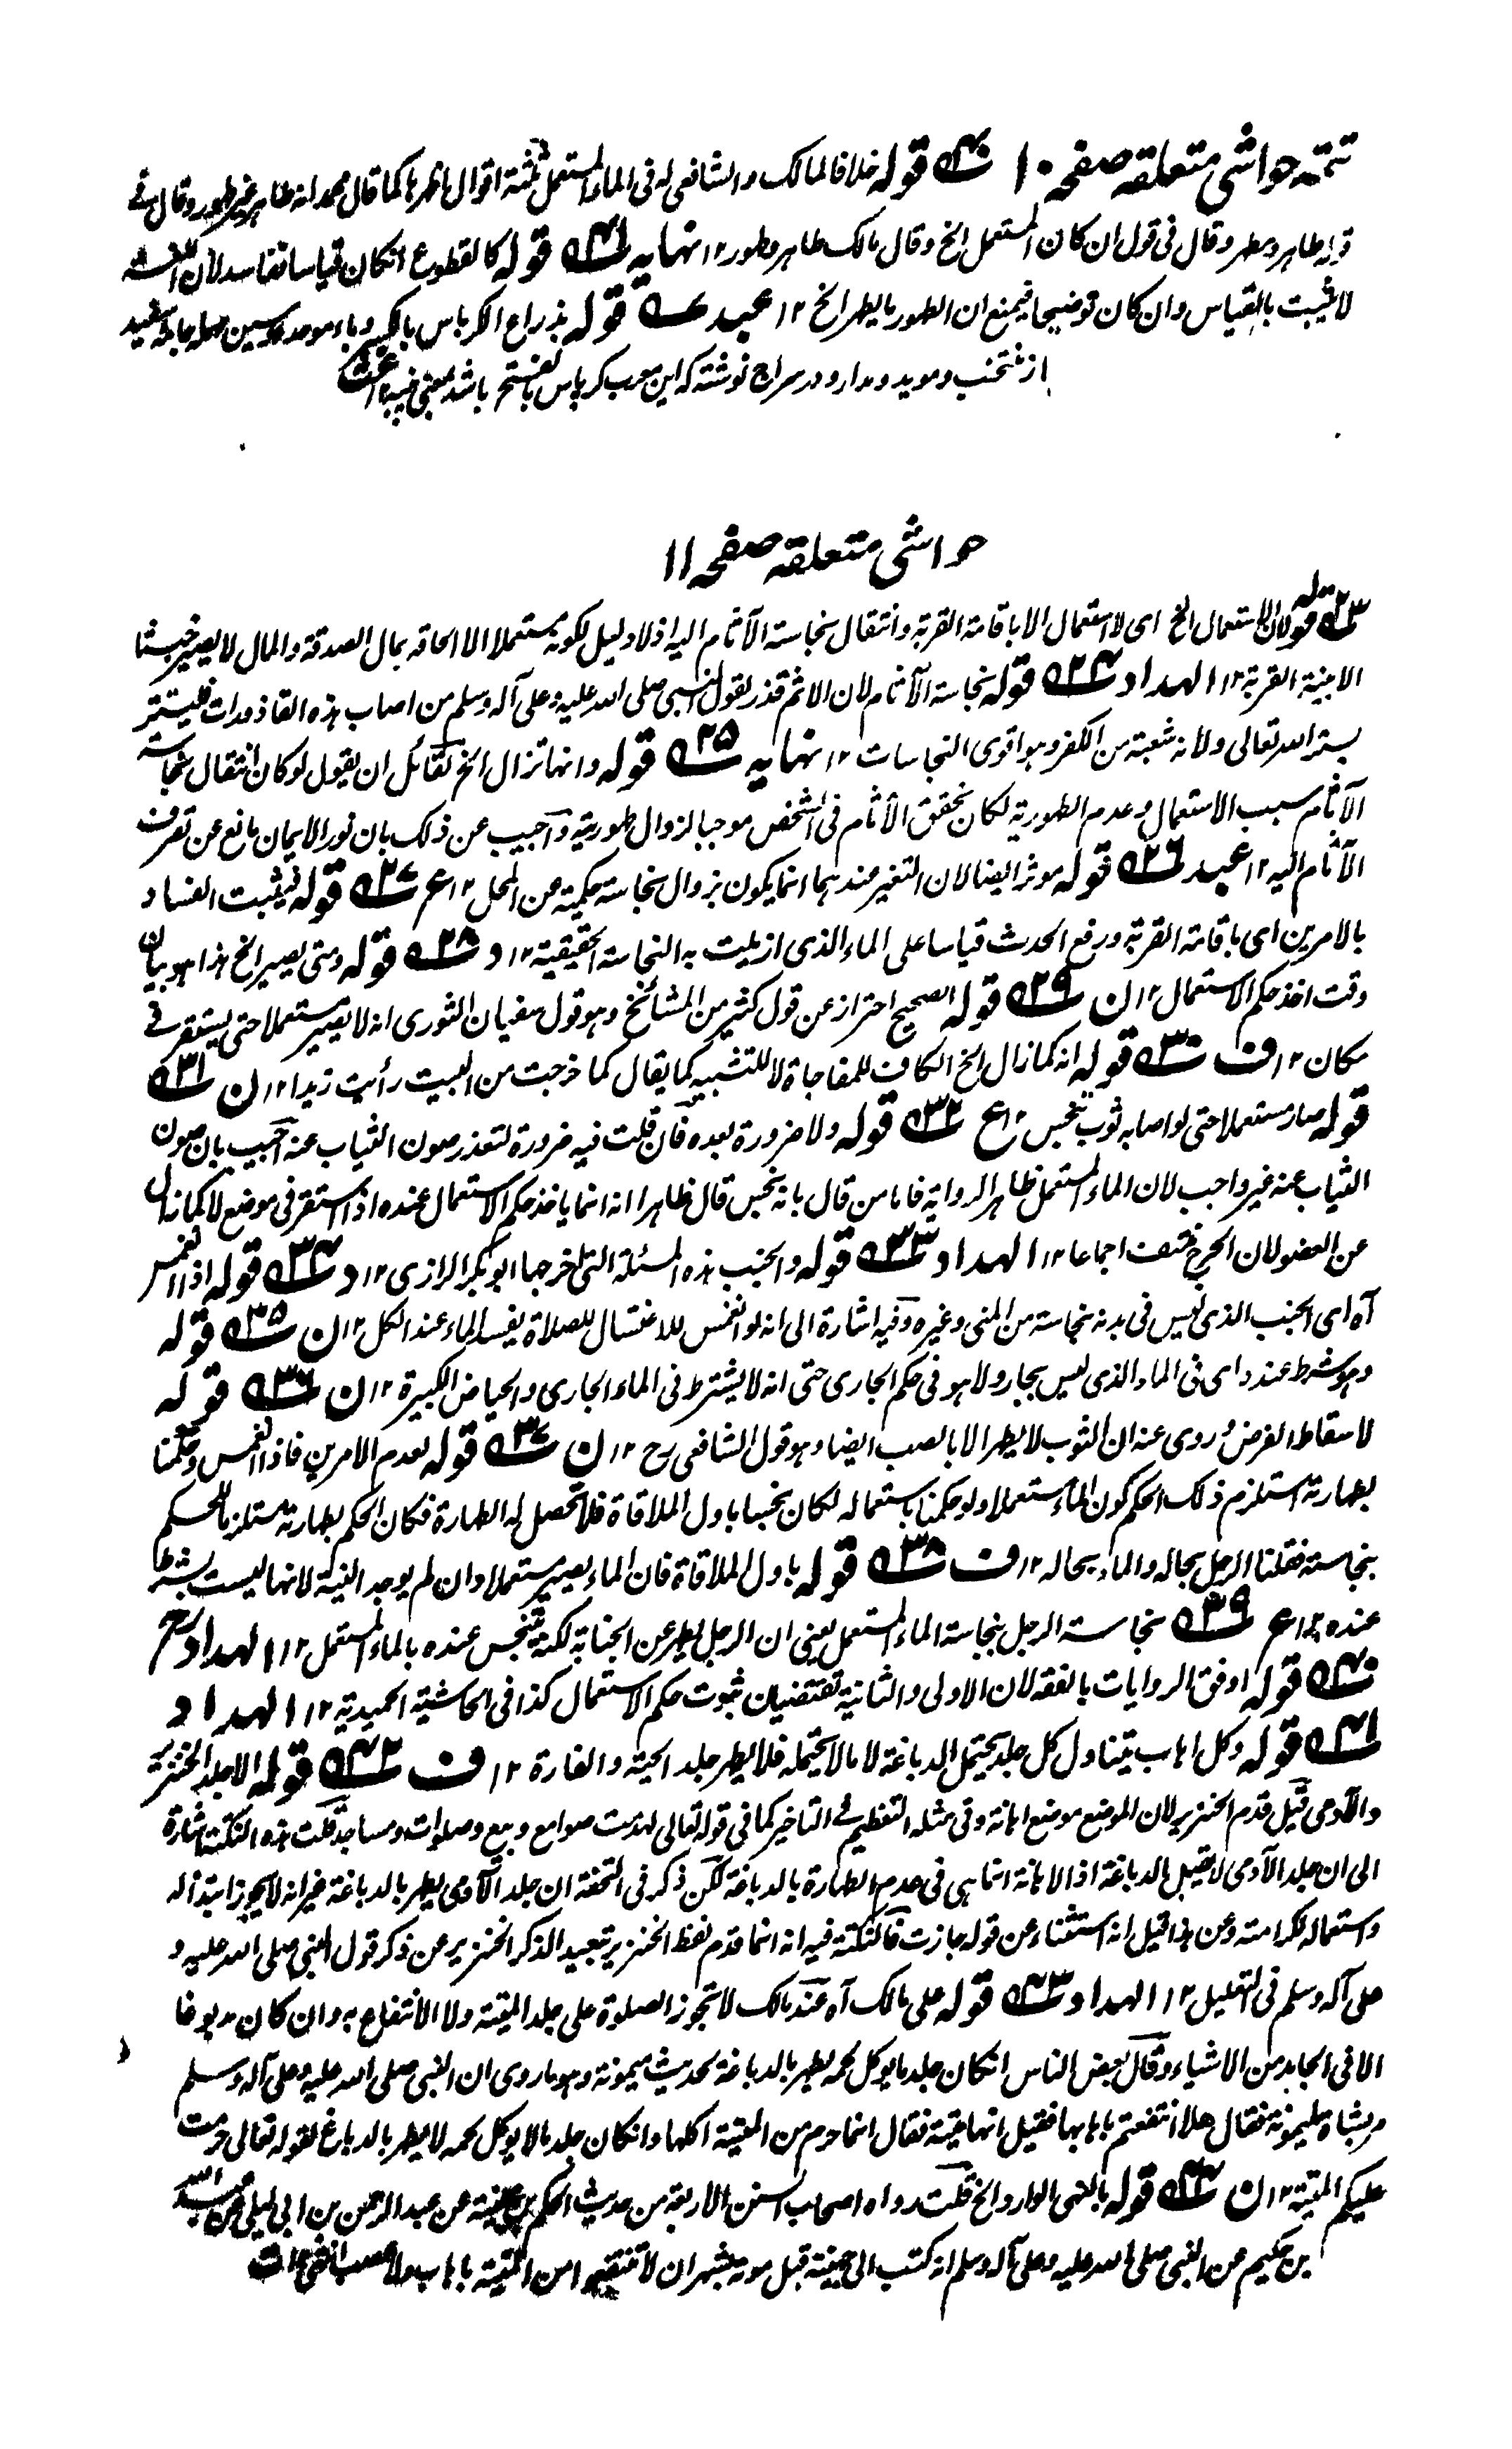 تتمہ حواشی متعلقہ صفحہ ١٠ ٤٠ قوله خلافا لمالک والشافعی له فی الماء المستعمل ثلثة اقوال اظهرها کما قال محمد انه طاهر غیر طهور وقال فی
قوله طاهر ومطهر وقال فی قول ان کان المستعمل الخ وقال مالک طاهر وطهور ١٢ نهایه ٤١ قوله کالقطوع انکان قیاسا ففاسد لان اللغة
لا تثبت بالقیاس وان کان توضیحا فیمنع ان الطهور ما یطهر الخ ١٢ عبد قوله بذراع الکرباس بالکسر وباء موحده وسین مهمله جامه سفید
از منتخب و موید و مدار و در سراج نوشته که این معرب کرپاس بالفتح باشد بمعنی
حواشی متعلقہ صفحہ ١١
٢٣ قوله لان الاستعمال الخ ای لا استعمال الا باقامة القربة وانتقال نجاسة الآثام الیه اذ لا دلیل لکونه مستعملا الا الحاقه بمال الصدقة والمال لا یصیر خبیثا
الا بنیة القربة ١٢ الهداد ٢٤ قوله نجاسة الآثام لان الاثم قذر لقول النبی صلی الله علیه وعلی آله وسلم من اصاب هذه القاذورات فلیستتر
بستر الله تعالی ولانه شعبة من الکفر وهو اقوی النجاسات ١٢ نهایه ٢٥ قوله وانها تزال الخ لقائل ان یقول لو کان انتقال نجاسة
الآثام سبب الاستعمال وعدم الطهوریة لکان تحقق الآثام فی الشخص موجبا لزوال طهوریته واجیب عن ذلک بان نور الایمان مانع عن تصرف
الآثام الیه ١٢ عبد ٢٦ قوله موثر ایضا لان التغیر عندهما انما یکون بزوال نجاسة حکمیة عن المحل ١٢ ع ٢٧ قوله فیثبت الفساد
بالامرین ای باقامة القربة ورفع الحدث قیاسا علی الماء الذی ازیلت به النجاسة الحقیقیة ١٢ د ٢٨ قوله ومتی یصیر الخ هذا هو بیان
وقت اخذ حکم الاستعمال ١٢ ن ٢٩ قوله الصحیح احتراز عن قول کثیر من المشائخ وهو قول سفیان الثوری انه لا یصیر مستعملا حتی یستقر فی
مکان ١٢ ف ٣٠ قوله انه کما زال الخ الکاف للمفاجاة لا للتشبیه کما یقال کما خرجت من البیت رأیت زیدا ١٢ ن ٣١
قوله صار مستعملا حتی لو اصابه ثوب تنجس ١٢ ع ٣٢ قوله ولا ضرورة بعده فان قلت فیه ضرورة لتعذر صون الثیاب عنه اجیب بان صون
الثیاب عنه غیر واجب لان الماء المستعمل ظاهر الروایة فاما من قال بانه نجس قال ظاهرا انه انما یاخذ حکم الاستعمال عنده اذا استقر فی موضع لا کما زال
عن العضو لان الحرج منتف اجماعا ١٢ الهداد ٣٣ قوله والجنب هذه المسئلة التی اخرجها ابو بکر الرازی ١٢ د ٣٤ قوله اذا انغمس
آه ای الجنب الذی لیس فی بدنه نجاسة من المنی وغیره وفیه اشارة الی انه لو انغمس للاغتسال للصلاة یفسد الماء عند الکل ١٢ ن ٣٥ قوله
وهو شرط عنده ای فی الماء الذی لیس بجار ولا هو فی حکم الجاری حتی انه لا یشترط فی الماء الجاری والحیاض الکبیرة ١٢ ن ٣٦ قوله
لاسقاط الفرض وروی عنه ان الثوب لا یطهر الا بالصب ایضا وهو قول الشافعی رح ١٢ ن ٣٧ قوله لعدم الامرین فاذا انغمس وحکمنا
بطهارته استلزم ذلک الحکم کون الماء مستعملا ولو حکمنا باستعماله لکان نجسا باول الملاقاة فلا تحصل له الطهارة فکان الحکم بطهارته مستلزما للحکم
بنجاسته فقلنا الرجل بحاله والماء بحاله ١٢ ف ٣٨ قوله باول الملاقاة فان الماء یصیر مستعملا وان لم یوجد النیة لانها لیست بشرط
عنده ١٢ ع ٣٩ نجاسة الرجل بنجاسة الماء المستعمل یعنی ان الرجل یطهر عن الجنابة لکنه یتنجس عنده بالماء المستعمل ١٢ الهداد رح
٤٠ قوله اوفق الروایات بالفقه لان الاولی والثانیة تقتضیان ثبوت حکم الاستعمال کذا فی الحاشیة الحمیدیة ١٢ الهداد
٤١ قوله وکل اهاب یتناول کل جلد یحتمل الدباغة لا ما لا یحتمله فلا یطهر جلد الحیة والفارة ١٢ ف ٤٢ قوله الا جلد الخنزیر
والآدمی قیل قدم الخنزیر لان الموضع موضع اهانة وفی مثله التعظیم فی التاخیر کما فی قوله تعالی لهدمت صوامع وبیع وصلوات ومساجد قلت هذه النکتة اشارة
الی ان جلد الآدمی لا یقبل بالدباغة اذ الاهانة انما هی فی عدم الطهارة بالدباغة لکن ذکر فی التحفة ان جلد الآدمی یطهر بالدباغة غیر انه لا یجوز ابتذاله
واستعماله لکرامته وعن هذا قیل انه استثناء عن قوله جازت فالنکتة فیه انه انما قدم لفظ الخنزیر تبعید الذکر الخنزیر عن ذکر قول النبی صلی الله علیه و
علی آله وسلم فی التعلیل ١٢ الهداد ٤٣ قوله علی مالک آه عند مالک لا تجوز الصلوة علی جلد المیتة ولا الانتفاع به وان کان مدبوغا
الا فی الجامد من الاشیاء وقال بعض الناس انکان جلد ما یوکل لحمه یطهر بالدباغة لحدیث میمونة وهو ما روی ان النبی صلی الله علیه وعلی آله وسلم
مر بشاة لمیمونة فقال هلا انتفعتم باهابها فقیل انها میتة فقال انما حرم من المیتة اکلها وانکان جلد ما لا یوکل لحمه لا یطهر بالدباغ لقوله تعالی حرمت
علیکم المیتة ١٢ ن ٤٤ قوله بالنهی الوارد الخ قلت رواه اصحاب السنن الاربعة من حدیث الحکم بن عیینة عن عبد الرحمن بن ابی لیلی عن عبد الله
بن حکیم عن النبی صلی الله علیه وعلی آله وسلم انه کتب الی جهینة قبل موته بشهر ان لا تنتفعوا من المیتة باهاب ولا عصب